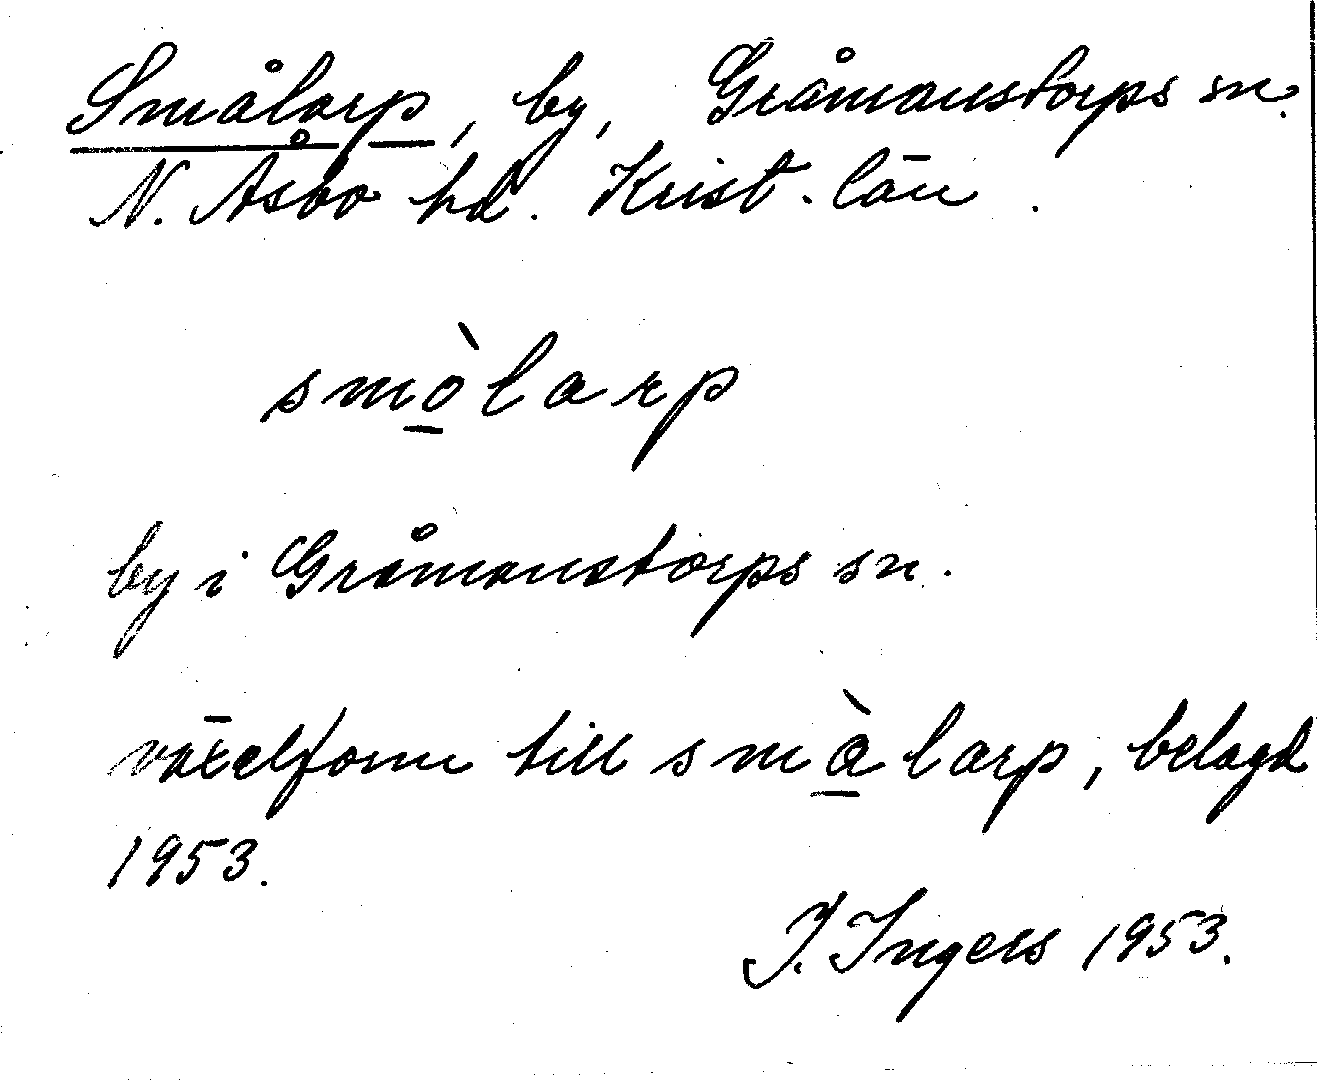 Smålarp, by, Gråmanstorps sn.
N. Åsbo hd. Krist. län.
smò̲larp
by i Gråmanstorps sn.
växelform till smà̲larp, belagd
1953.
I. Ingers 1953.